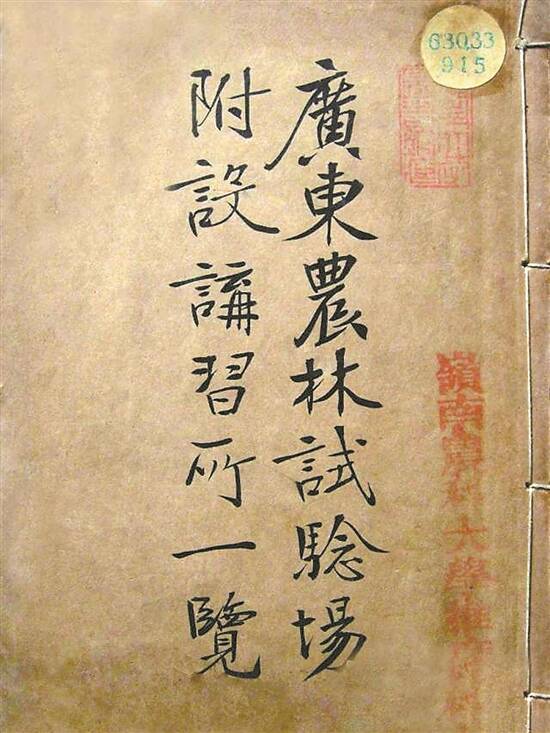 廣東農林試驗場
附設講習所一覽
630.33
915
嶺南農科大學